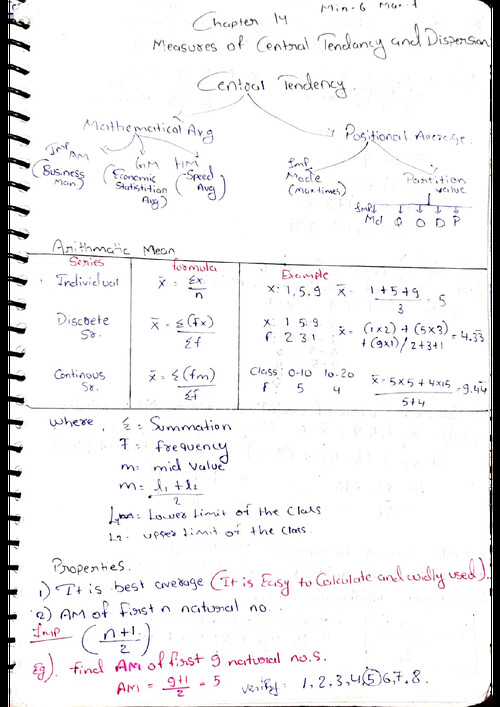 Chapter 14
Min-6 Max-
Measures of Central Tendancy and Dispersion
Central Tendency.
Mathematical Avg
Positional Average.
Imp AM
(Business Man)
GM
(Economic Statistition Avg)
HM
(Speed Avg)
Imp Mode
(Max times)
Partition value
Imp Md Q O D P
Arithmatic Mean
Series formula Example
Individual x̄ = Σx/n x: 1, 5, 9 x̄ = 1+5+9/3 = 5
Discrete Sr. x̄ = Σ(fx)/Σf x: 1 5 9 f: 2 3 1 x̄ = (1x2) + (5x3) + (9x1)/2+3+1 = 4.33
Continous Sr. x̄ = Σ(fm)/Σf Class: 0-10 10-20 F: 5 4 x̄ = 5x5 + 4x15/5+4 = 9.44
where, Σ = Summation
F = frequency
m= mid value
m= l₁ + l₂/2
= Lower Limit of the Class
L₂ = upper limit of the class.
Properties.
1) It is best average (It is Easy to Calculate and widly used).
2) AM of first n natural no.
Imp (n+1/2)
Eg). find AM of first 9 natural no.s.
AM = 9+1/2 = 5 verify: 1, 2, 3, 4, 5, 6, 7, 8.